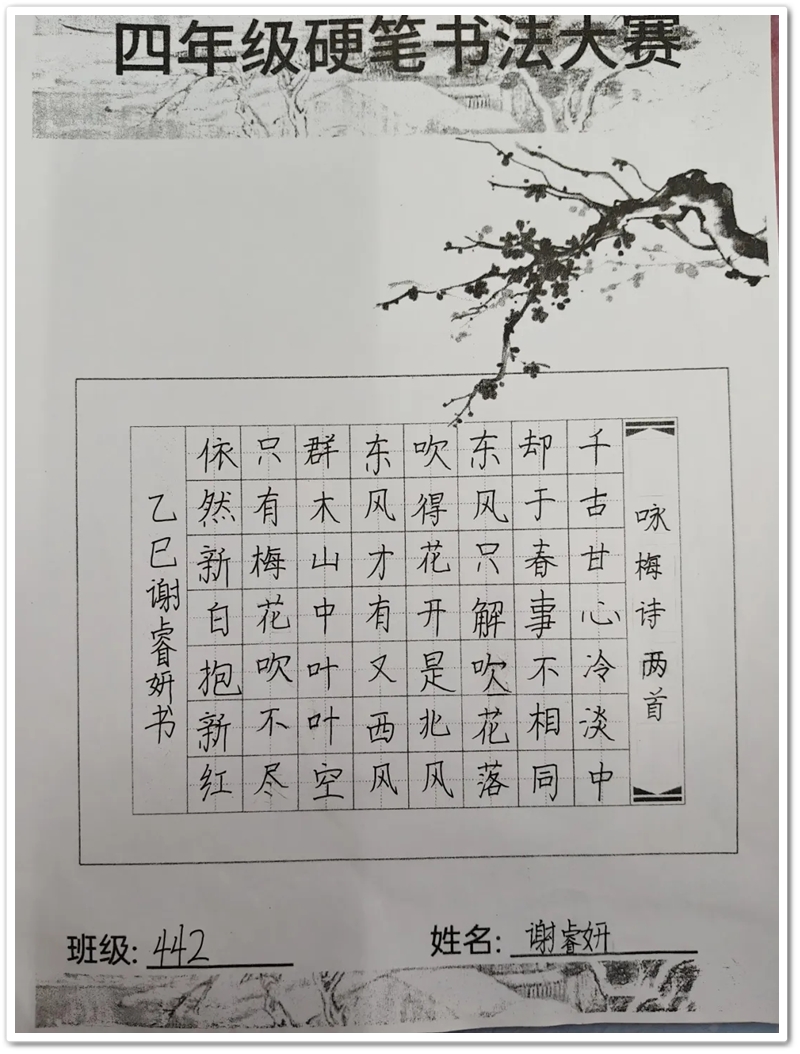 四年级硬笔书法大赛
咏梅诗两首
千古甘心冷淡中
却于春事不相同
东风只解吹花落
吹得花开是北风
东风才有又西风
群木山中叶叶空
只有梅花吹不尽
依然新白抱新红
乙巳谢睿妍书
班级: 442
姓名: 谢睿妍